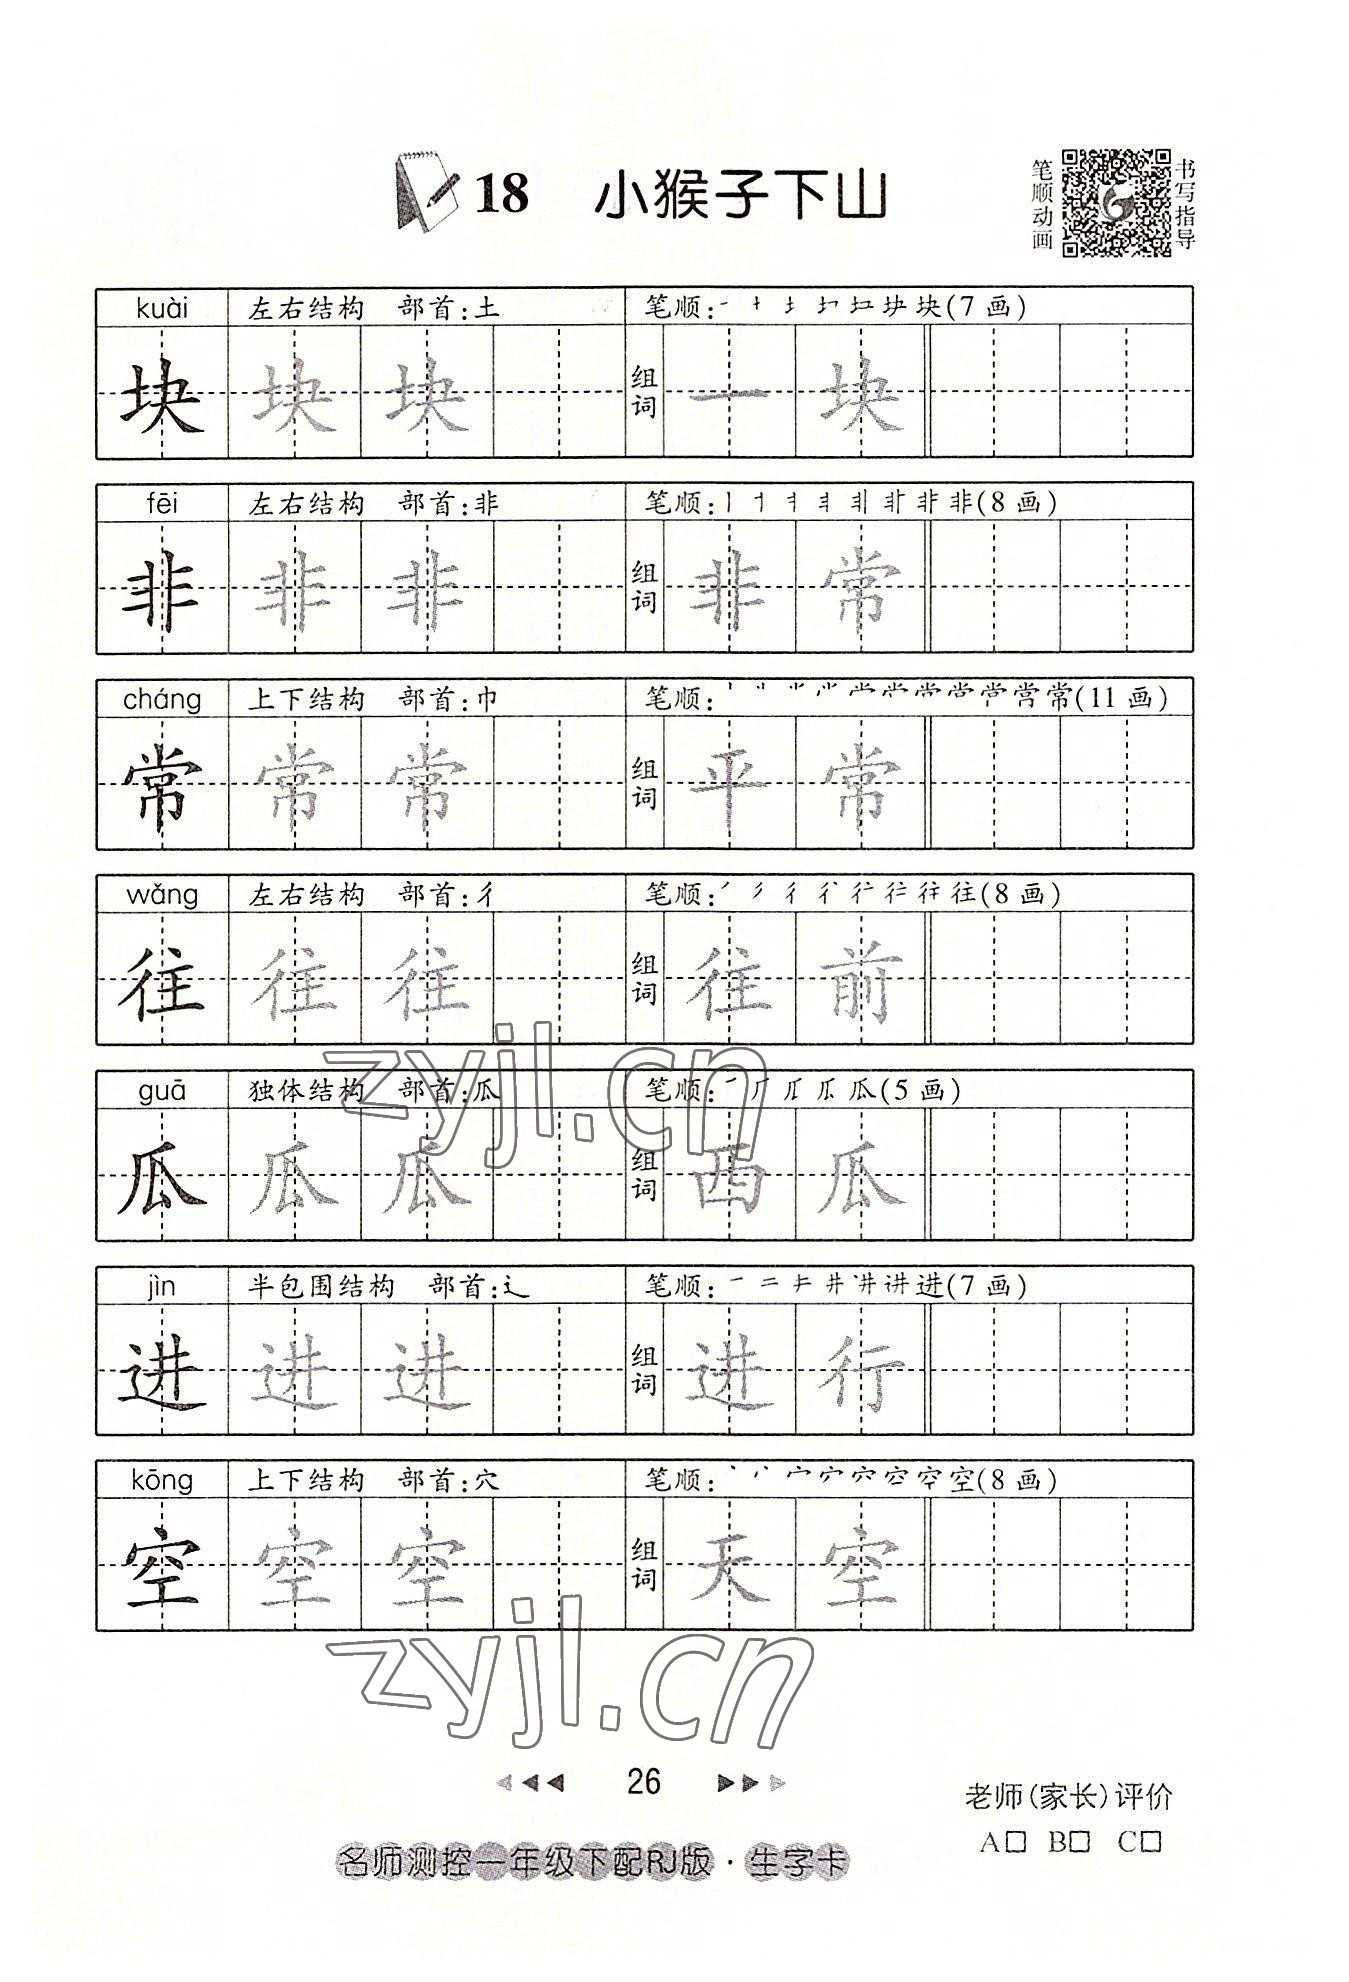 18 小猴子下山
笔顺动画
书写指导
kuài 左右结构 部首:土 笔顺: 块(7画)
块 块 块 组词 一 块
fēi 左右结构 部首:非 笔顺: 非(8画)
非 非 非 组词 非 常
cháng 上下结构 部首:巾 笔顺: 常(11画)
常 常 常 组词 平 常
wǎng 左右结构 部首:彳 笔顺: 往(8画)
往 往 往 组词 往 前
guā 独体结构 部首:瓜 笔顺: 瓜(5画)
瓜 瓜 瓜 组词 西 瓜
jìn 半包围结构 部首:辶 笔顺: 进(7画)
进 进 进 组词 进 行
kōng 上下结构 部首:穴 笔顺: 空(8画)
空 空 空 组词 天 空
zyjl.cn
zyjl.cn
26
老师(家长)评价
A□ B□ C□
名师测控一年级下配RJ版·生字卡